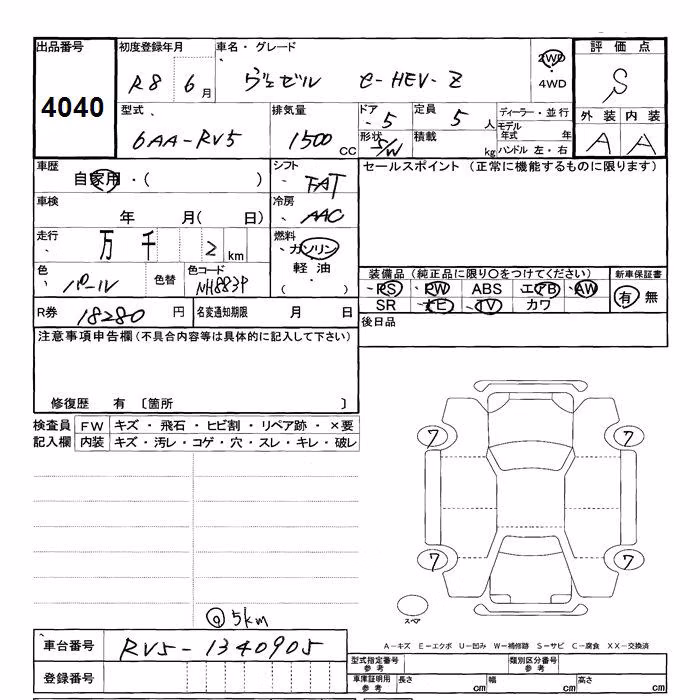 出品番号 初度登録年月 車名・グレード 2WD 評価点
4040 R8 6月 ヴェゼル e-HEV-Z 4WD S
型式 排気量 ドア 定員 ディーラー・並行 外装 内装
6AA-RV5 1500 CC 5 5人 モデル年式 年 A A
形状 S/W 積載 kg ハンドル 左・右
車歴 自家用・( ) シフト FAT セールスポイント (正常に機能するものに限ります)
車検 年 月( 日) 冷房 AAC
走行 万 千 2 km 燃料 ガソリン
軽油
( )
色 パール 色替 色コード NH883P 装備品 (純正品に限り○をつけてください) 新車保証書
PS PW ABS エアB AW 有 無
SR ナビ TV カワ
R券 18280 円 名変通知期限 月 日 後日品
注意事項申告欄(不具合内容等は具体的に記入して下さい)
修復歴 有 〔箇所 〕
検査員 FW キズ・飛石・ヒビ割・リペア跡・×要
記入欄 内装 キズ・汚レ・コゲ・穴・スレ・キレ・破レ
7 7
7 7
スペア
@5km
A-キズ E-エクボ U-凹み W-補修跡 S-サビ C-腐食 XX-交換済
車台番号 RV5-1340905
登録番号
型式指定番号 参考 類別区分番号 参考
車庫証明用 参考 長さ cm 幅 cm 高さ cm